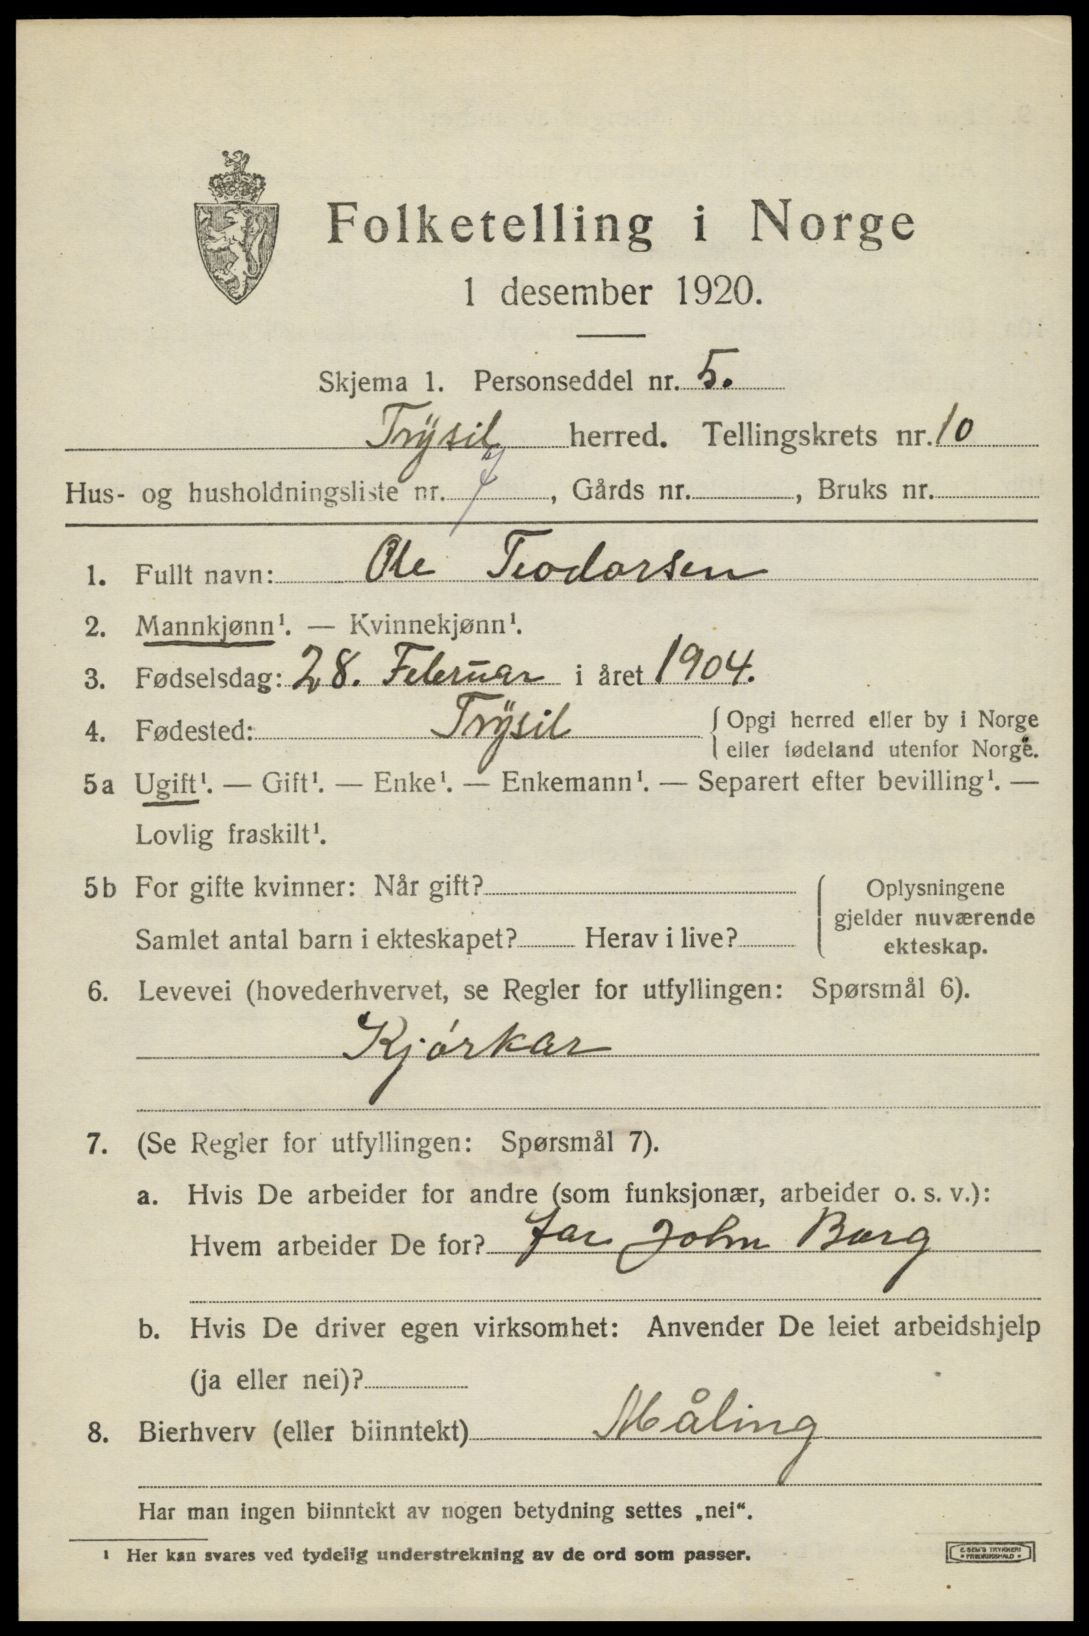 Folketelling i Norge
1 desember 1920.
Skjema 1. Personseddel nr. 5.
Trysil herred. Tellingskrets nr. 10
Hus- og husholdningsliste nr. 7, Gårds nr. , Bruks nr.
1. Fullt navn: Ole Teodorsen
2. Mannkjønn¹. — Kvinnekjønn¹.
3. Fødselsdag: 28. Februar i året 1904.
4. Fødested: Trysil {Opgi herred eller by i Norge
eller fødeland utenfor Norge.
5a Ugift¹. — Gift¹. — Enke¹. — Enkemann¹. — Separert efter bevilling¹. —
Lovlig fraskilt¹.
5b For gifte kvinner: Når gift?
Samlet antal barn i ekteskapet? Herav i live?
Oplysningene
gjelder nuværende
ekteskap.
6. Levevei (hovederhvervet, se Regler for utfyllingen: Spørsmål 6).
Kjørkar
7. (Se Regler for utfyllingen: Spørsmål 7).
a. Hvis De arbeider for andre (som funksjonær, arbeider o. s. v.):
Hvem arbeider De for? for John Borg
b. Hvis De driver egen virksomhet: Anvender De leiet arbeidshjelp
(ja eller nei)?
8. Bierhverv (eller biinntekt) Måling
Har man ingen biinntekt av nogen betydning settes „nei“.
¹ Her kan svares ved tydelig understrekning av de ord som passer.
E. SEM'S TRYKKERI
FREDRIKSHALD